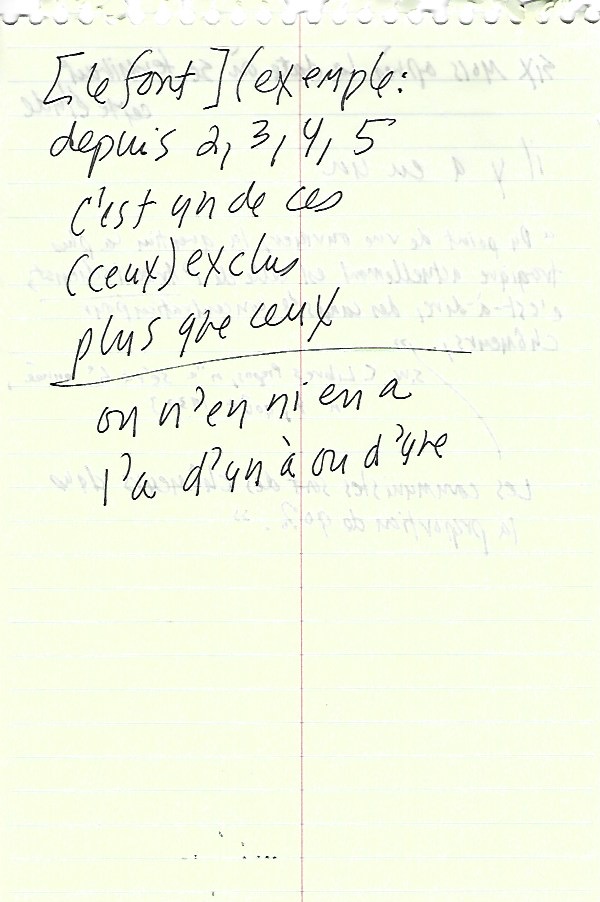 [le font] (exemple:
depuis 2, 3, 4, 5
c'est un de ces
(ceux) exclus
plus que ceux
on n'en ni en a
l'a d'un à ou d'une